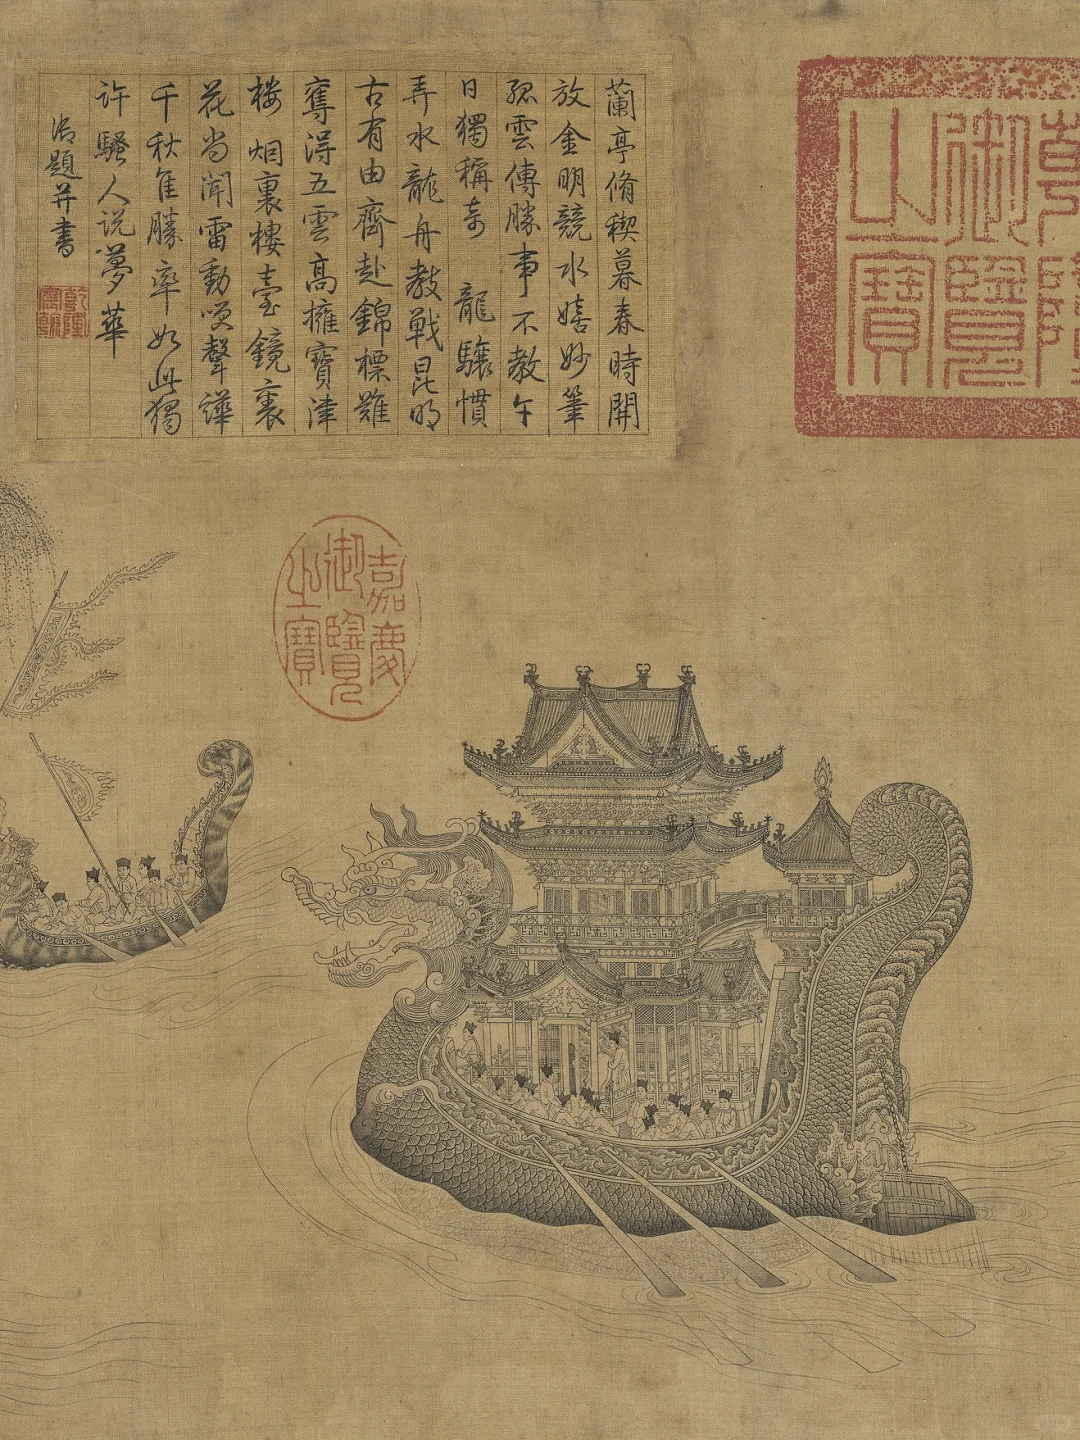 乾隆
御覽
之寶
蘭亭脩稧暮春時開
放金明競水嬉妙筆
孤雲傳勝事不教午
日獨稱奇 龍驤慣
弄水龍舟教戰昆明
古有由齊赴錦標難
奪得五雲高擁寶津
樓 烟裏樓臺鏡裏
花尚聞雷動嘆聲譁
千秋隹勝率如此獨
許騷人説夢華
御題并書
乾隆
宸翰
嘉慶
御覽
之寶